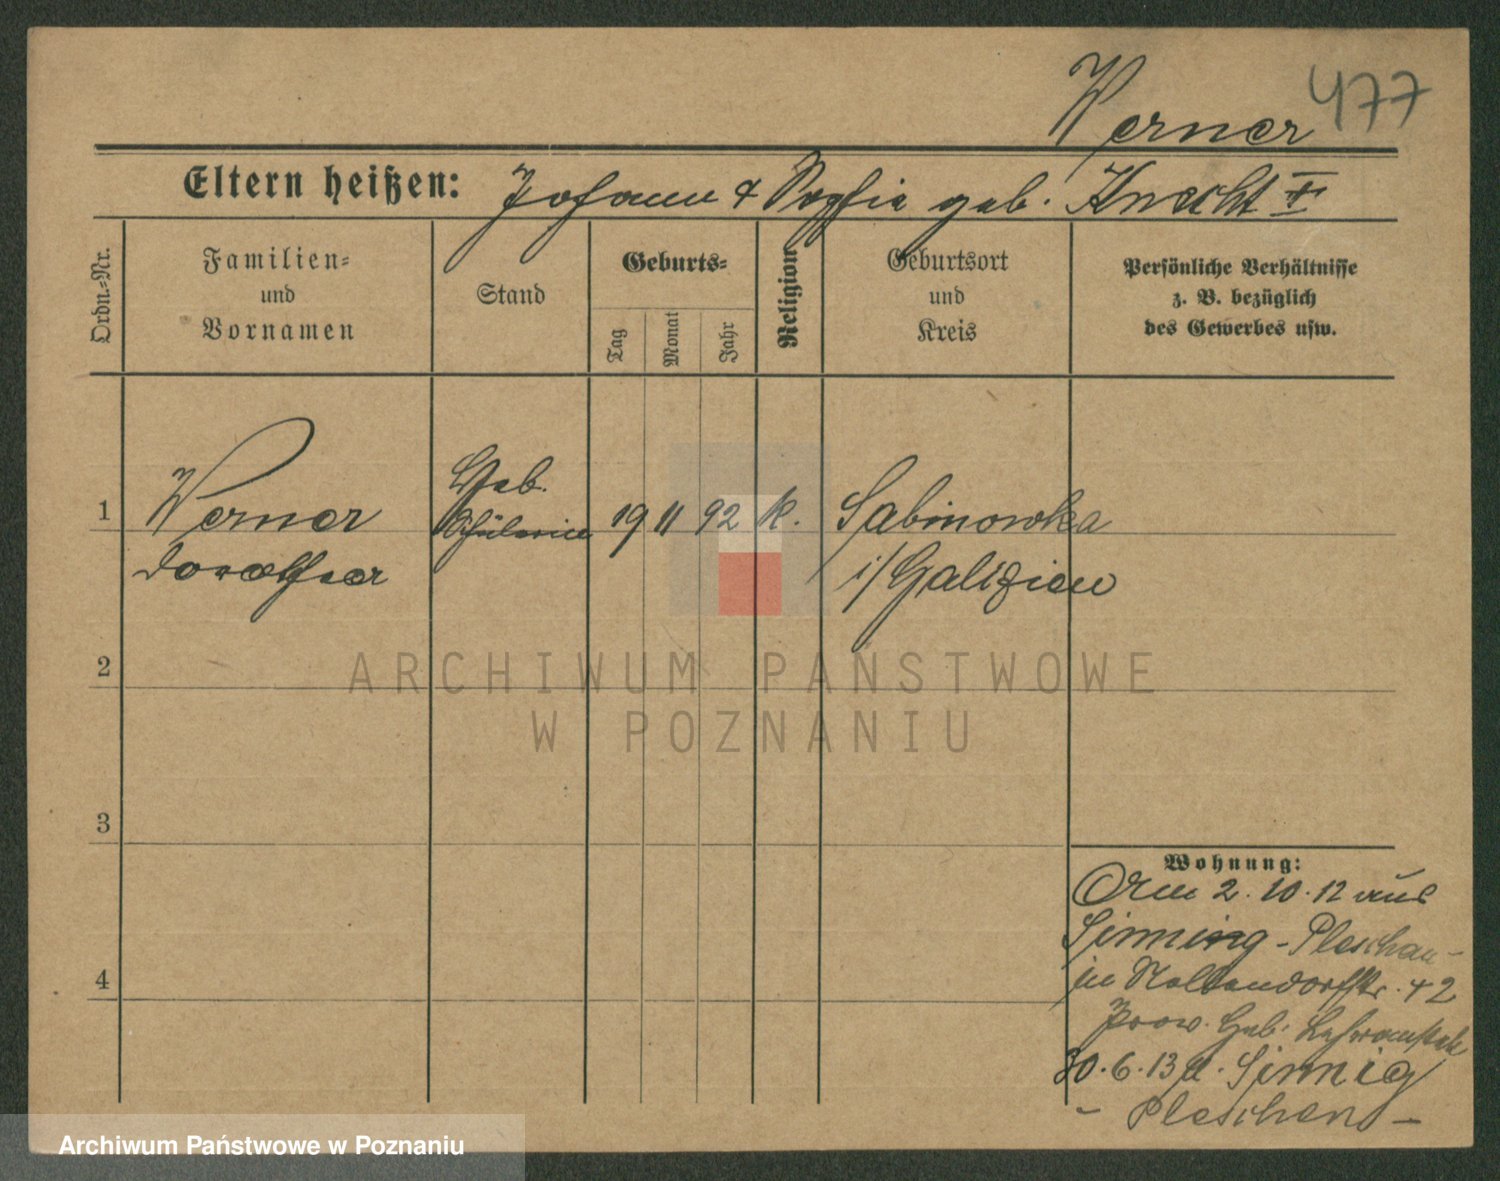 Werner 477
Eltern heißen: Johann & Sophie geb. Knecht II
Ordn.-Nr.
Familien-
und
Vornamen
Stand
Geburts-
Tag
Monat
Jahr
Religion
Geburtsort
und
Kreis
Persönliche Verhältnisse
z. B. bezüglich
des Gewerbes usw.
1
Werner
Dorothea
Geb.
Schülerin
19 11 92 k.
Sabinowka
i/ Galizien
2
3
4
Wohnung:
2. 10. 12 aus
Pleschen -
in Nollendorffstr. 42
Prov. Heb. Lehranstalt
30. 6. 13 n. Sinnig
- Pleschen -
ARCHIWUM PAŃSTWOWE
W POZNANIU
Archiwum Państwowe w Poznaniu